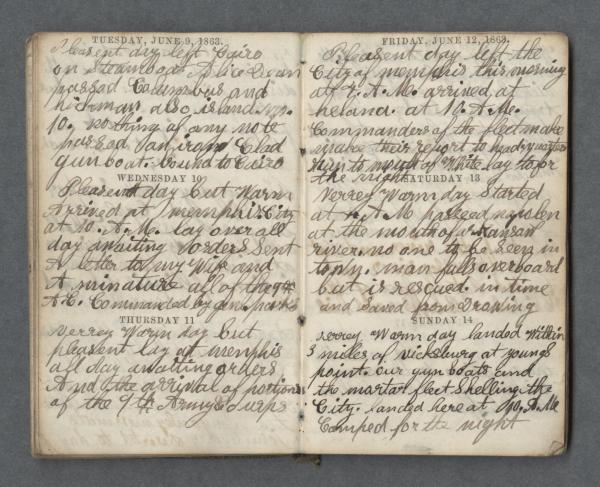 TUESDAY, JUNE 9, 1863.
Pleasent day left Cairo
on Steamboat Alice Dean
passed Columbus and
hickman also island No.
10. nothing of any note
passed an iron Clad
gun boat. bound to Cairo
WEDNESDAY 10
Pleasent day but Warm
Arrived at memphis City
at 10. A.M. lay over all
day awaiting orders Sent
A letter to my Wife and
A minature all of the 9th
A.C. Commanded by Gen. parks
THURSDAY 11
verrey Warm day but
pleasent lay at memphis
all day awaiting orders
And the arrival of portions
of the 9th Army Corps
FRIDAY, JUNE 12, 1863.
Pleasent day left the
City of memphis this morning
at 7. A.M. arrived at
helana. at 10. A.M.
Commanders of the fleet make
make their report to headquarters
run to mouth of White lay to for
the night
SATURDAY 13
Verrey Warm day Started
at A.M passed napolen
at the mouth of Kansan
river. no one to be seen in
town. man falls overboard
but is rescued. in time
and Saved from Drowing
SUNDAY 14
verrey Warm day landed Within
3 miles of vicksburg at youngs
point. our gun boats and
the mortar fleet Shelling the
City. landed here at 10. A.M.
Camped for the night